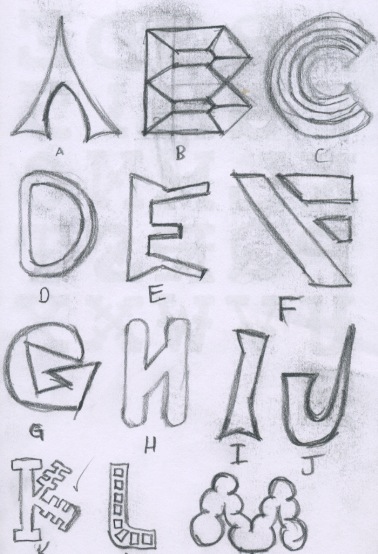 A B C
A B C
D E F
D E F
G H I J
G H I J
K L M
K